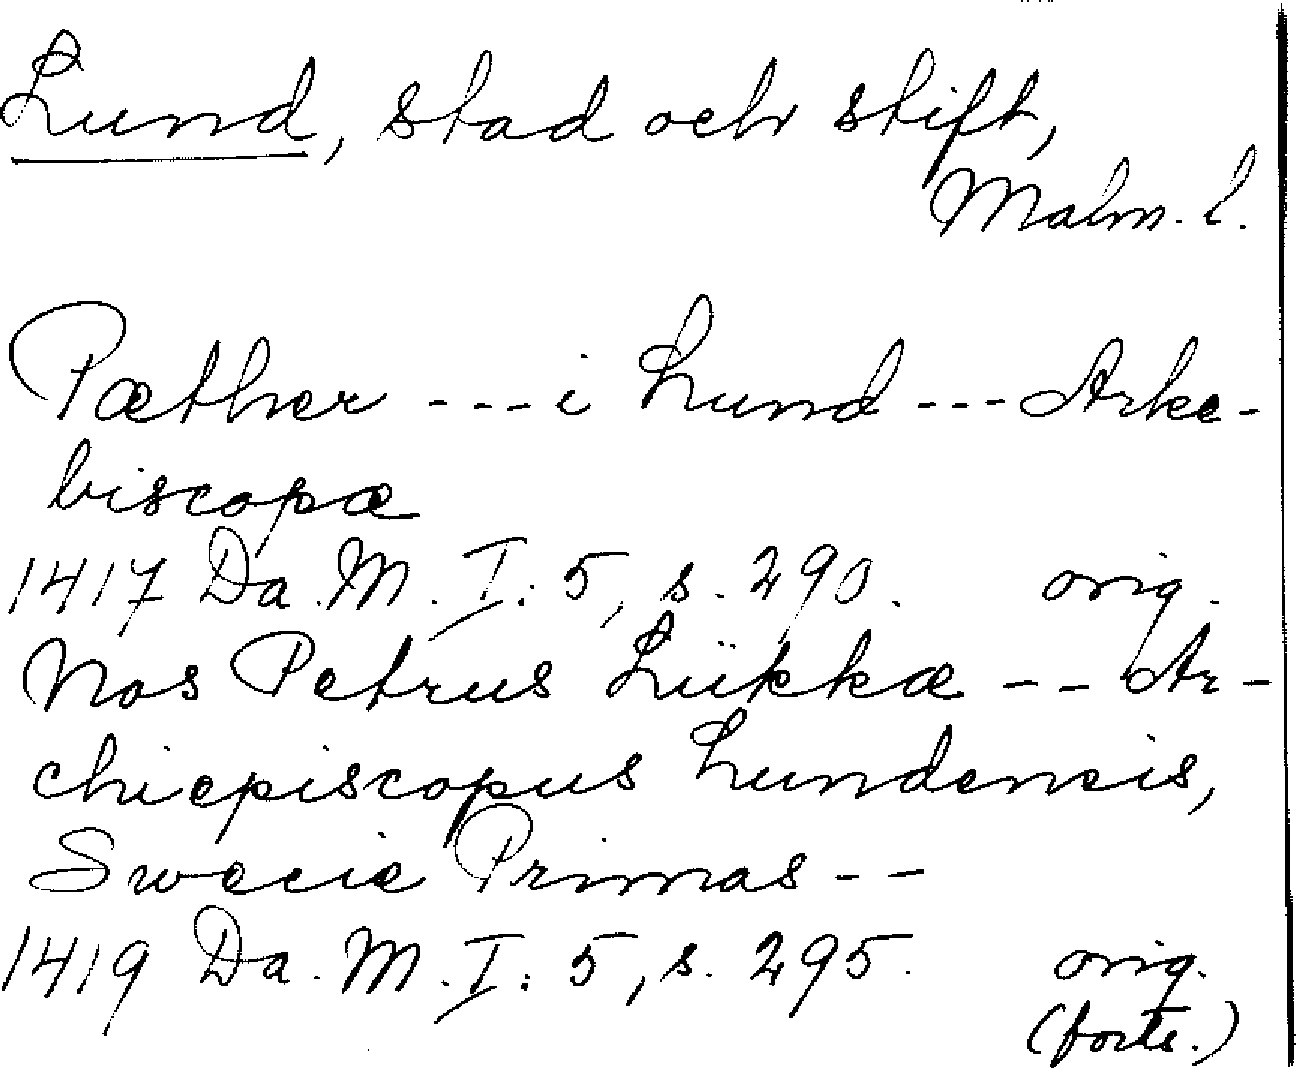 Lund, stad och stift,
Malm. l.
Pæther --- i Lund --- Arke-
biscopæ
1417 Da. M. I: 5, s. 290. orig.
Nos Petrus Lükkæ -- Ar-
chiepiscopus Lundencis,
Swecie Primas --
1419 Da. M. I: 5, s. 295. orig.
(forts.)